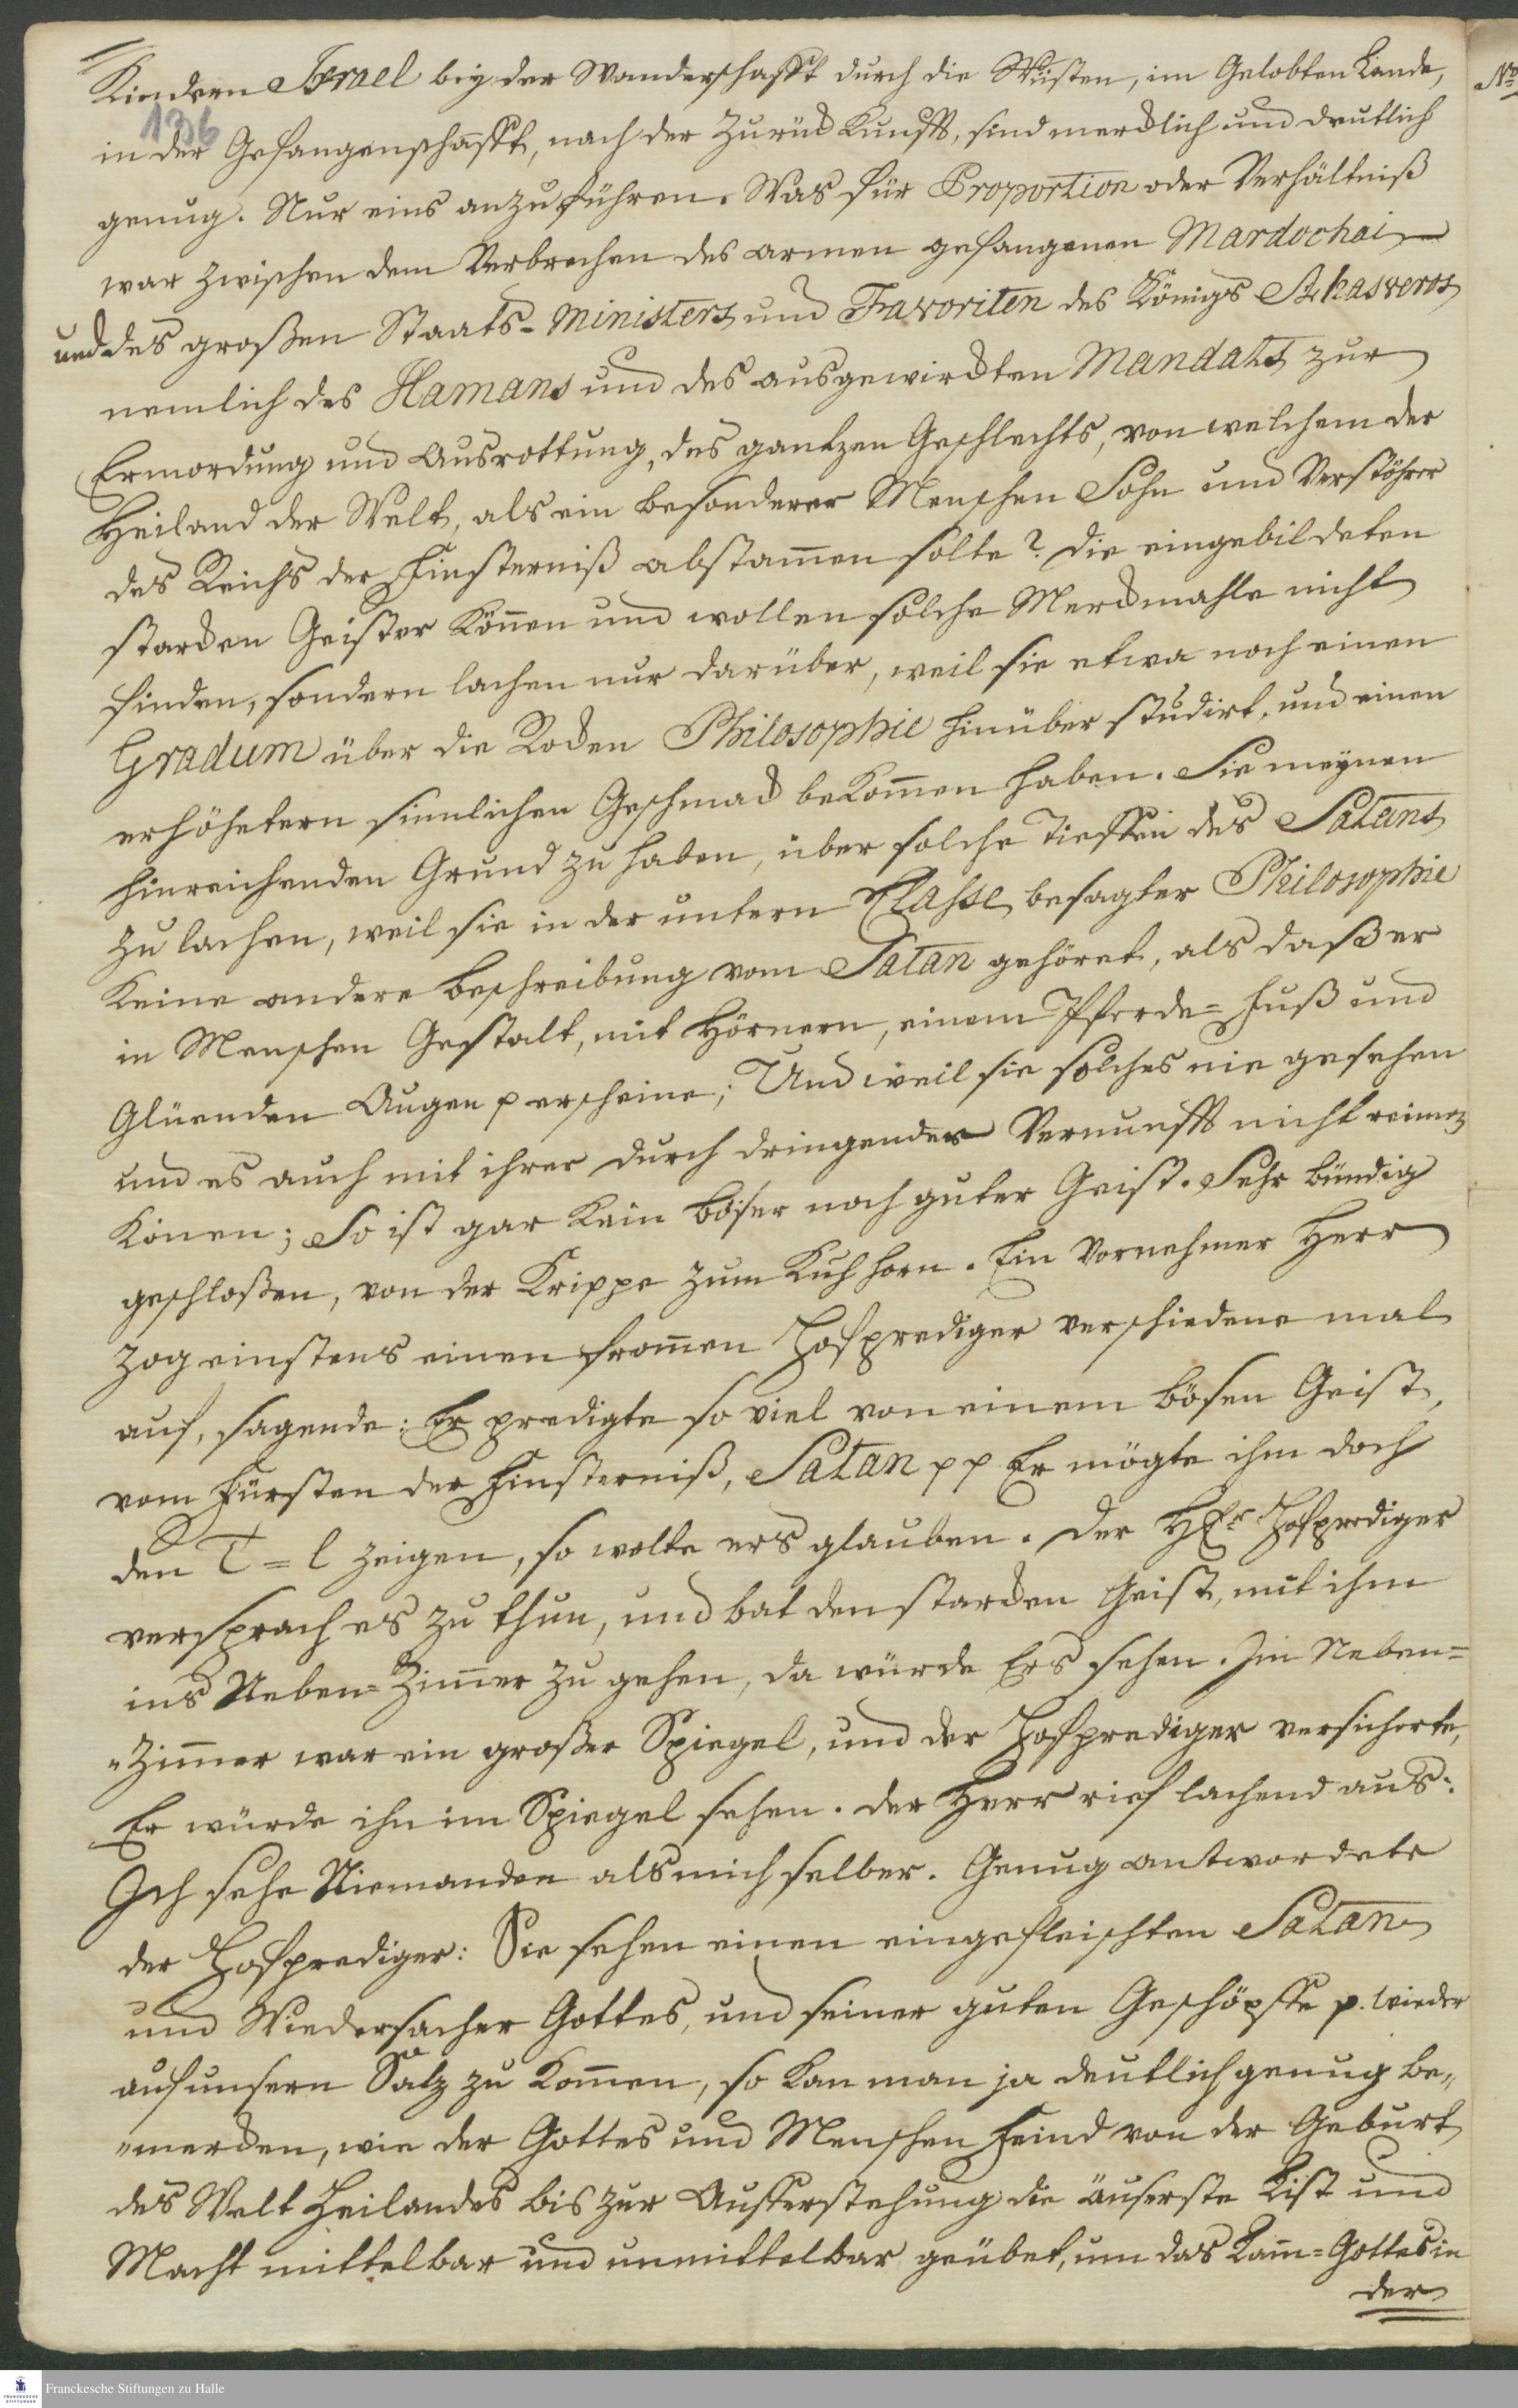 Kindern Israel bey der Wanderschafft durch die Wüsten, im Gelobten Lande,
136
in der Gefangenschafft, nach der Zurück Kunfft, sind mercklich und deutlich
genug. Nur eins anzuführen. Was für Proportion oder Verhältniß
war zwischen dem Verbrechen des armen gefangenen Mardochai
und des großen Staats-Ministers und Favoriten des Königs Ahasveros
nemlich des Hamans und des ausgewirckten Mandats zur
Ermordung und Ausrottung, des gantzen Geschlechts, von welchem der
Heiland der Welt, als ein besonderer Menschen Sohn und Verstöhrer
des Reichs der Finsterniß abstam̅en solte? Die eingebildeten
starcken Geister kön̅en und wollen solche Merckmahle nicht
finden, sondern lachen nur darüber, weil sie etwa noch einen
Gradum über die Rocken Philosophie hinüber studirt, und einen
erhöhetern sinnlichen Geschmack bekom̅en haben. Sie meynen
hinreichenden Grund zu haben, über solche Tieffen des Satans
zu lachen, weil sie in der untern Classe besagter Philosophie
keine andere Beschreibung vom Satan gehöret, als daß er
in Menschen Gestalt, mit Hörnern, einem Pferde-Fuß und
Glüenden Augen p erscheine; Und weil sie solches nie gesehen
und es auch mit ihrer durch dringenden Vernunfft nicht reimen
könen; So ist gar kein böser noch guter Geist. Sehr bündig
geschloßen, von der Krippe zum Kuh horn. Ein Vornehmer Herr
zog einstens einen from̅en Hofprediger verschiedene mal
auf, sagende: Er predigte so viel von einem bösen Geist,
vom Fürsten der Finsterniß, Satan pp Er mögte ihm doch
den T=l zeigen, so wolte ers glauben. Der HEr Hofprediger
versprach es zu thun, und bat den starcken Geist, mit ihm
ins Neben-Zim̅er zu gehen, da würde Ers sehen. Im Neben=
"Zim̅er war ein großer Spiegel, und der Hofprediger versicherte,
Er würde ihn im Spiegel sehen. Der Herr rief lachend aus:
Ich sehe Niemanden als mich selber. Genug antwordete
der Hofprediger: Sie sehen einen eingefleischten Satan
und Wiedersacher Gottes, und seiner guten Geschöpffe p. Wieder
auf unsern Satz zu kom̅en, so kan man ja deutlich genug be„
"mercken, wie der Gottes und Menschen Feind von der Geburt
des Welt Heilandes bis zur Aufferstehung die äuserste List und
Macht mittelbar und unmittelbar geübet, um das Lam̅=Gottes in
der
No
Franckesche Stiftungen zu Halle